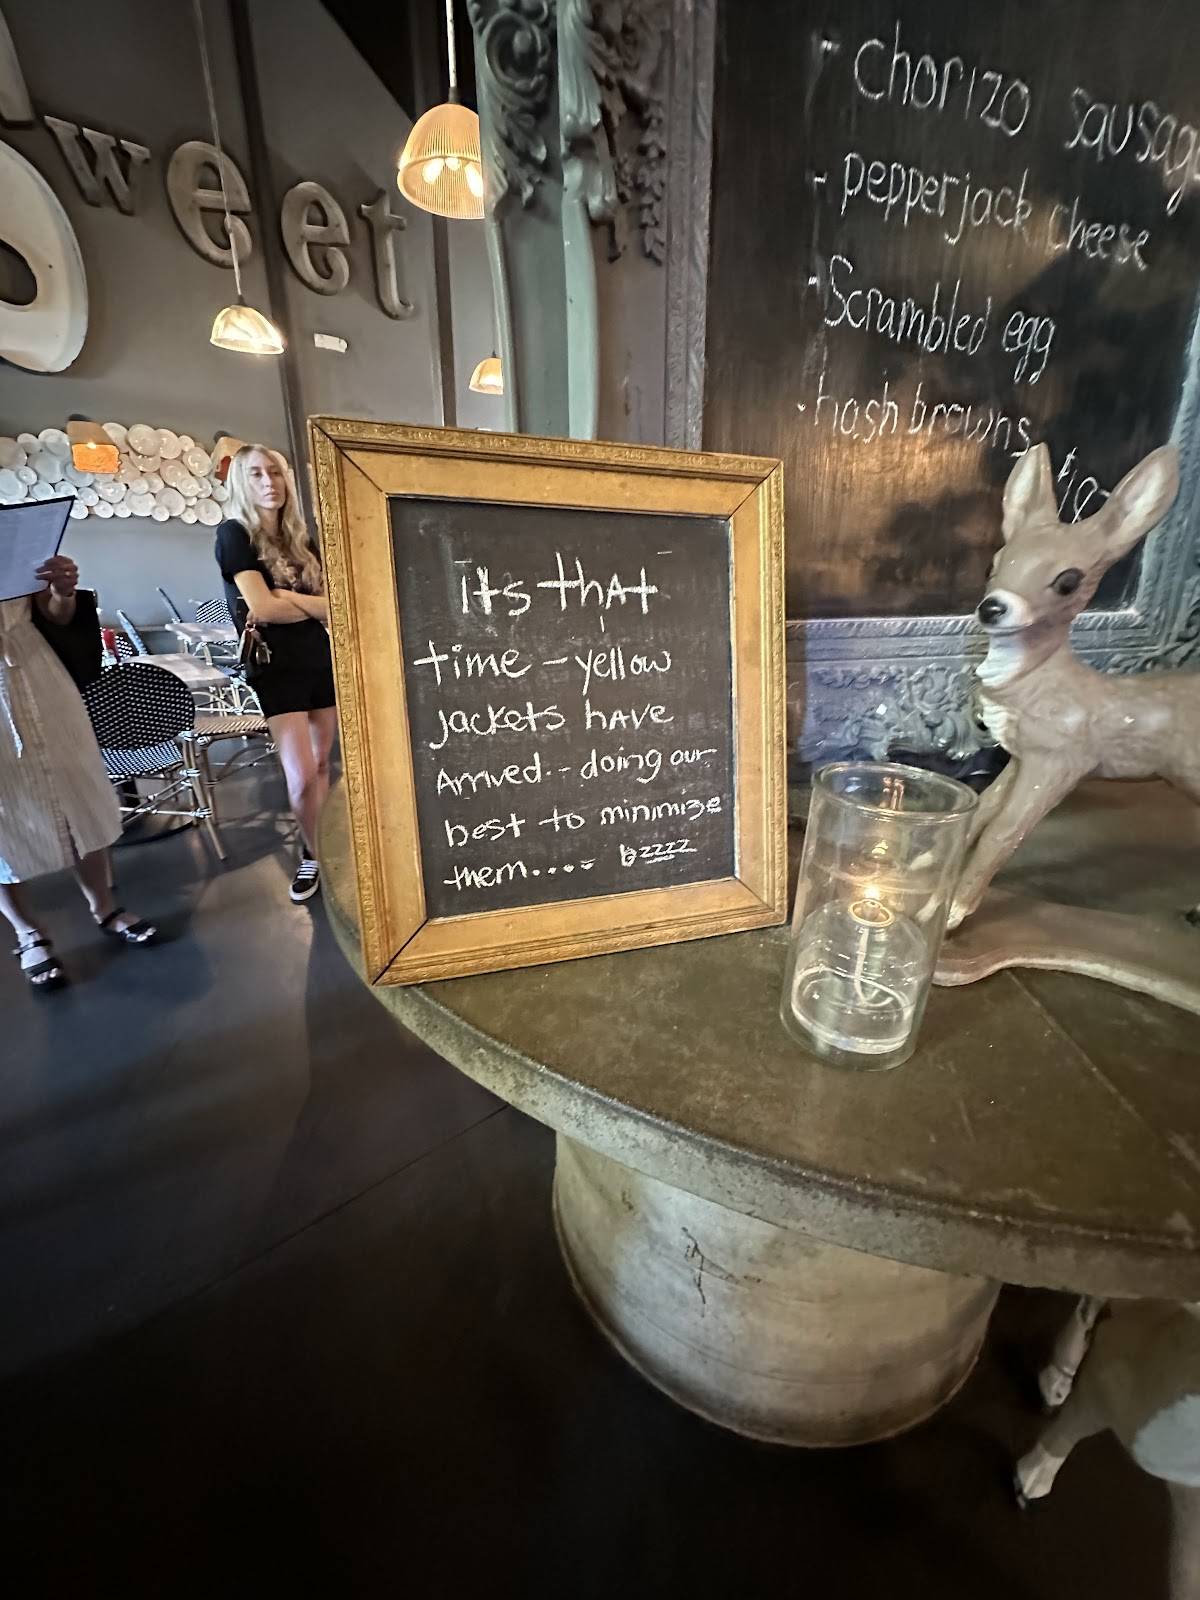 sweet
- chorizo sausage
- pepperjack cheese
- Scrambled egg
- hash browns
Its thAt
time - yellow
jackets hAve
Arrived.-- doing our
best to minimize
them.... bzzzz